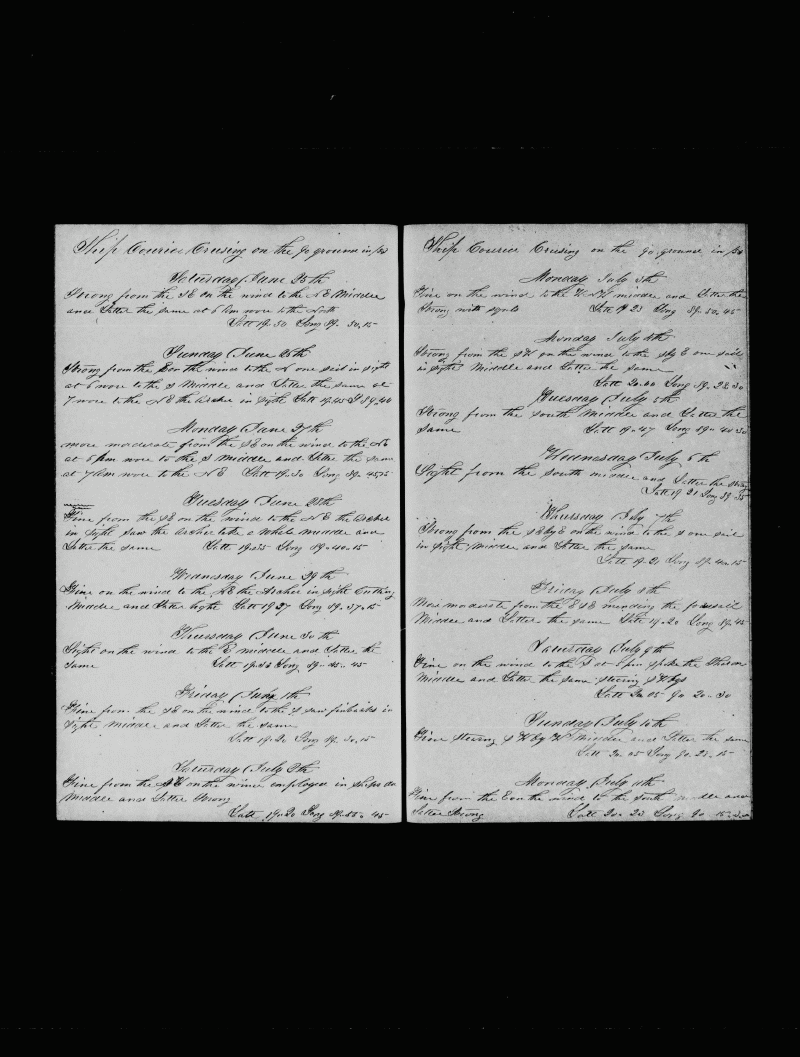 Ship Courier Crusing on the 90 ground in
Saturday June 25th
Strong from the SE on the wind to the NE Middle
and Latter the same at 6 Pm wore to the South
Latt 19-50 Long 89-50-15
Sunday June 26th
Strong from the E on the wind to the N one sail in sight
at 6 wore to the S Middle and Latter the same at
7 wore to the NE the Archer in sight Latt 19-45 89-40
Monday June 27th
more moderate from the SE on the wind to the NE
at 6 Pm wore to the S middle and Latter the same
at 7 Am wore to the NE Latt 19-30 Long 89-45-15
Tuesday June 28th
Fine from the SE on the wind to the NE the Archer
in sight saw the Archer take a Whale middle and
Latter the same Latt 19-35 Long 89-40-15
Wednesday June 29th
Fine on the wind to the NE the Archer in sight Cutting
Middle and Latter light Latt 19-27 Long 89-37-15
Thursday June 30th
Light on the wind to the E middle and Latter the
same Latt 19-36 Long 89-35-45
Friday July 1th
Fine from the SE on the wind to the S saw finbacks in
sight middle and Latter the same
Latt 19-20 Long 89-30-15
Saturday July 2th
Fine from the on the wind employed in ships du
Middle and Latter Strong
Latt 19-20 Long 89-55-45
Ship Courier Cruising on the 90 ground in
Monday July 3th
Fine on the wind to the middle and Latter the
Strong with squls Latt 19-23 Long 89-50-45
Monday July 4th
Strong from the on the wind to the S by E one sail
in sight Middle and Latter the same
Latt 20-00 Long 89-28-30
Tuesday July 5th
Strong from the South Middle and Latter the
same Latt 19-47 Long 89-40-30
Wednesday July 6th
Light from the South middle and Latter the strong
Latt 19 21 Long 89-35
Thursday July 7th
Strong from the SEbyE on the wind to the S one sail
in sight Middle and Latter the same
Latt 19-21 Long 89-40-15
Friday July 8th
More moderate from the ESE mending the foresail
Middle and Latter the same Latt 19-20 Long 89-45
Saturday July 9th
Fine on the wind to the S at 1 Pm spoke the
Middle and Latter the same stearing
Latt 20-05 90-20-30
Sunday July 10th
Fine stearing Middle and Latter the same
Latt 20-05 Long 90-25-15
Monday July 11th
Fine from the E on the wind to the South middle and
Latter Strong Latt 20-23 Long 90-15-30